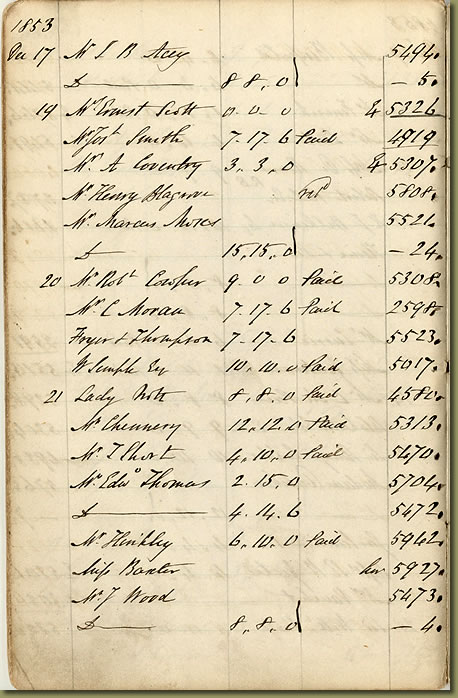 1853
Dec 17 Mr I B Acey 5494.
Do 8 8. 0 — 5.
19 Mr Ernest Scott 0. 0. 0 & 5326
Mr Jos. Smith 7. 17. 6 Paid 4919
Mr A Coventry 3. 3. 0 & 5307.
Mr Henry Blagrove 5808.
Mr Marcus Moses 5521.
Do 15. 15. 0 — 24.
20 Mr Robt Cowper 9. 0 0 Paid 5308.
Mr C Moran 7. 17. 6 Paid 2598.
Fryer & Thompson 7. 17. 6 5523.
W Semple Esq 10. 10. 0 Paid 5017.
21 Lady Nott 8. 8. 0 Paid 4580.
Mr Chennery 12. 12. 0 Paid 5313.
Mr T Short 4. 10. 0 Paid 5470.
Mr Edwd Thomas 2. 15. 0 5704.
Do 4. 14. 6 5472.
Mr Hinkley 6. 10. 0 Paid 5962.
Miss Baxter 5927.
Mr J Wood 5473.
Do 8. 8. 0 — 4.